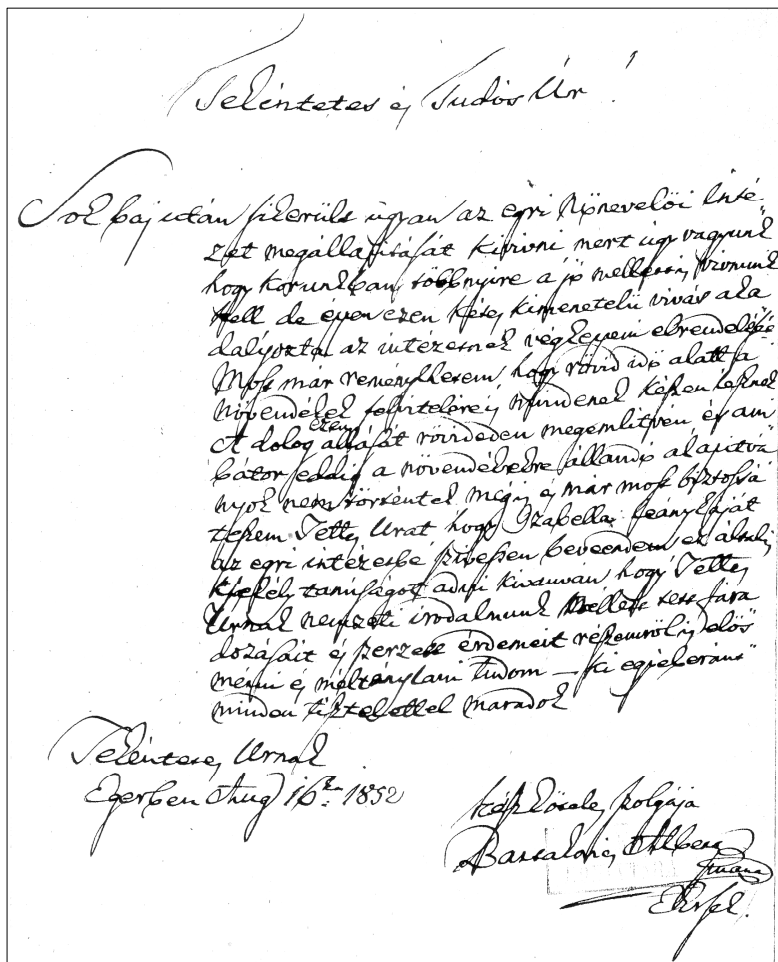 Tekéntetes és Tudós Úr!
Sok baj után sikerült ugyan az egri Nőnevelői Inté-
zet megállapítását kivívni mert úgy vagyunk
hogy korunkban többnyire a jó mellett is vívnunk
kell de éppen ezen késő kimenetelű vívás aka
dályozta az intézetnek végképeni elrendelését
Most már reménylhetem, hogy rövid idő alatt a
növendékek felvitelére is mindenek készen lesznek
A dolog ezen állását röviden megemlítvén és am
bátor eddig a növendékekre állandó alapítvá
nyok nem történtek mégis és már most biztossá
teszem Tettes Urat hogy Izabella leánykáját
az egri intézetbe szívessen beveendem ez által is
csekély tanúságot adni kívánván hogy Tettes
Urnak nemzeti irodalmunk mellett tett fára
dozásait és szerzett érdemeit részemről is elös
merni és méltánylani tudom — ki egyébaránt
minden tisztelettel maradok
Tekéntetes Urnak
Egerben Aug 16kán 1852
kész köteles szolgája
Bartakovics Albert
Érsek.